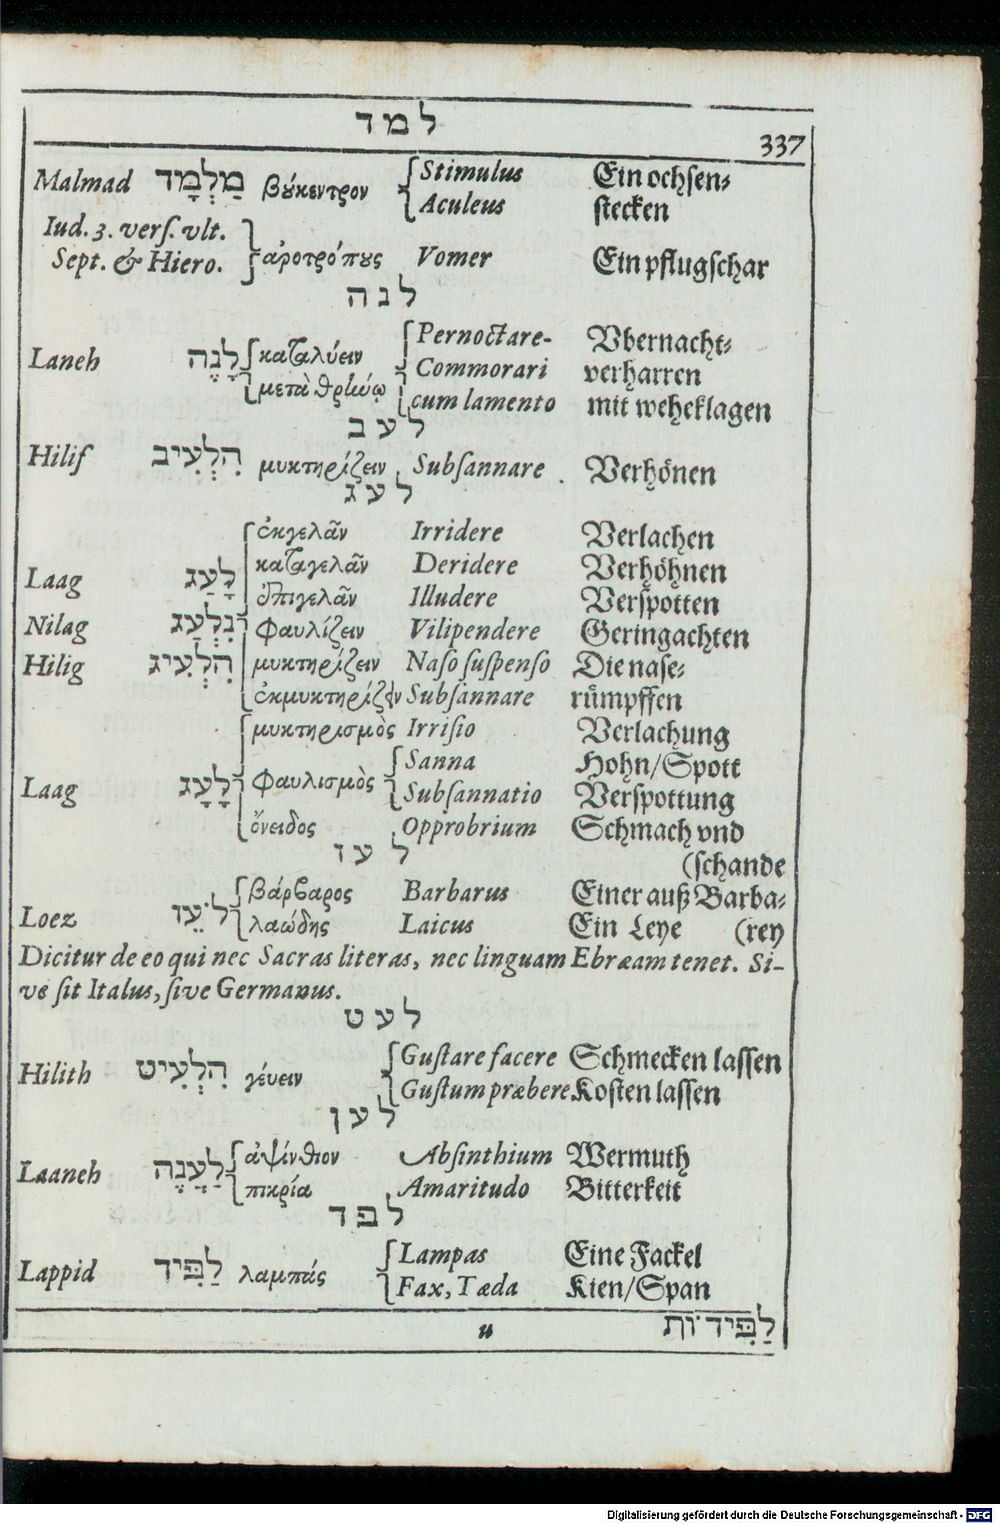 למד
337
Malmad מַלְמָד βούκεντρον Stimulus Ein ochsen⸗
Aculeus stecken
Iud. 3. verſ. vlt.
Sept. & Hiero. ἀροτρόπους Vomer Ein pflugschar
לנה
Pernoctare- Vbernacht⸗
Laneh לָנֶה καταλύειν Commorari verharren
μετὰ θρήνῳ cum lamento mit weheklagen
לעב
Hilif הִלְעִיב μυκτηρίζειν Subſannare Verhönen
לעג
ἐκγελᾶν Irridere Verlachen
καταγελᾶν Deridere Verhöhnen
Laag לָעַג ἐπιγελᾶν Illudere Verspotten
Nilag נִלְעַג φαυλίζειν Vilipendere Geringachten
Hilig הִלְעִיג μυκτηρίζειν Naſo ſuſpenſo Die nase⸗
ἐκμυκτηρίζειν Subſannare rümpffen
μυκτηρισμὸς Irriſio Verlachung
Sanna Hohn/Spott
Laag לָעָג φαυλισμὸς Subſannatio Verspottung
ὄνειδος Opprobrium Schmach vnd
לעז (schande
βάρβαρος Barbarus Einer auß Barba⸗
Loez לֹעֵז λαώδης Laicus Ein Leye (rey
Dicitur de eo qui nec Sacras literas, nec linguam Ebræam tenet. Si-
ve ſit Italus, ſive Germanus.
לעט
Hilith הִלְעִיט γέυειν Guſtare facere Schmecken lassen
Guſtum præbere Kosten lassen
לען
Laaneh לַעֲנֶה ἀψίνθιον Abſinthium Wermuth
πικρία Amaritudo Bitterkeit
לפד
Lappid לַפִּיד λαμπάς Lampas Eine Fackel
Fax, Tæda Kien/Span
u לַפִּידוֹת
Digitalisierung gefördert durch die Deutsche Forschungsgemeinschaft - DFG